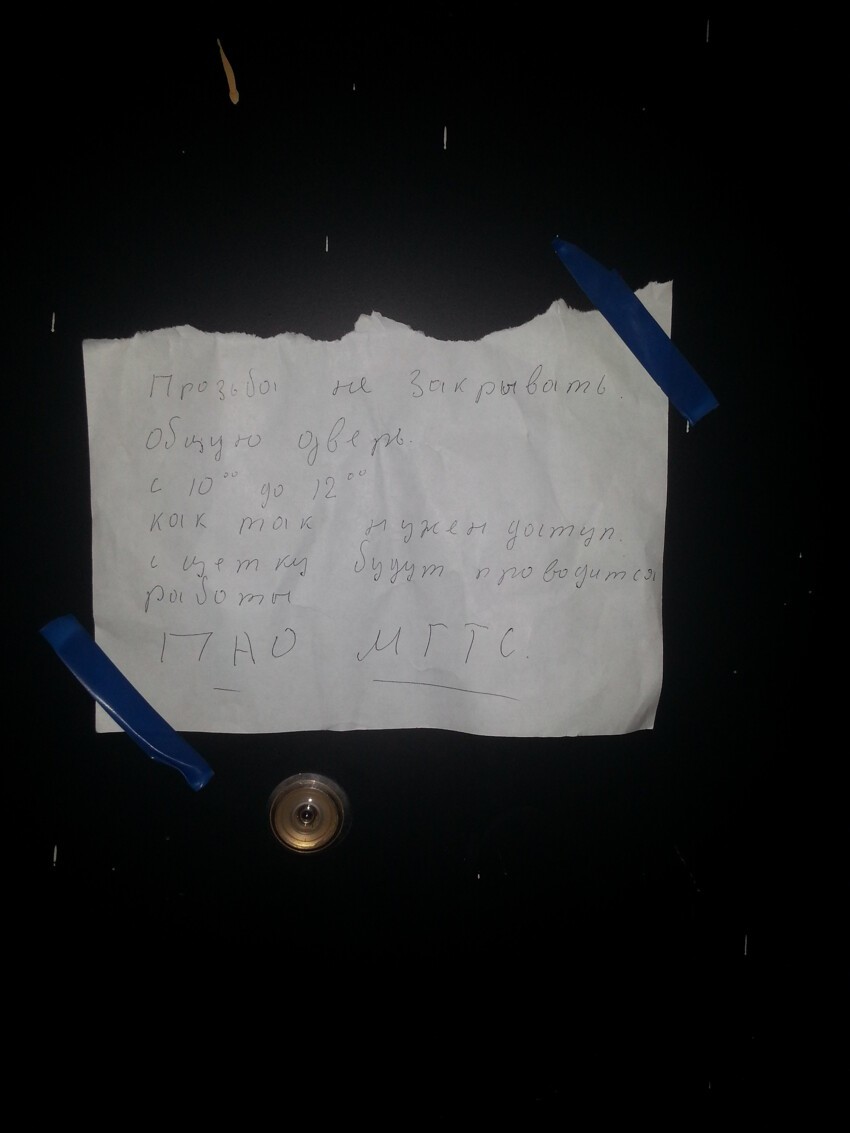 Прозьба не закрывать.
общую дверь.
с 10⁰⁰ до 12⁰⁰
как так нужен доступ.
к щетку будут проводится
работы
ПАО МГТС.